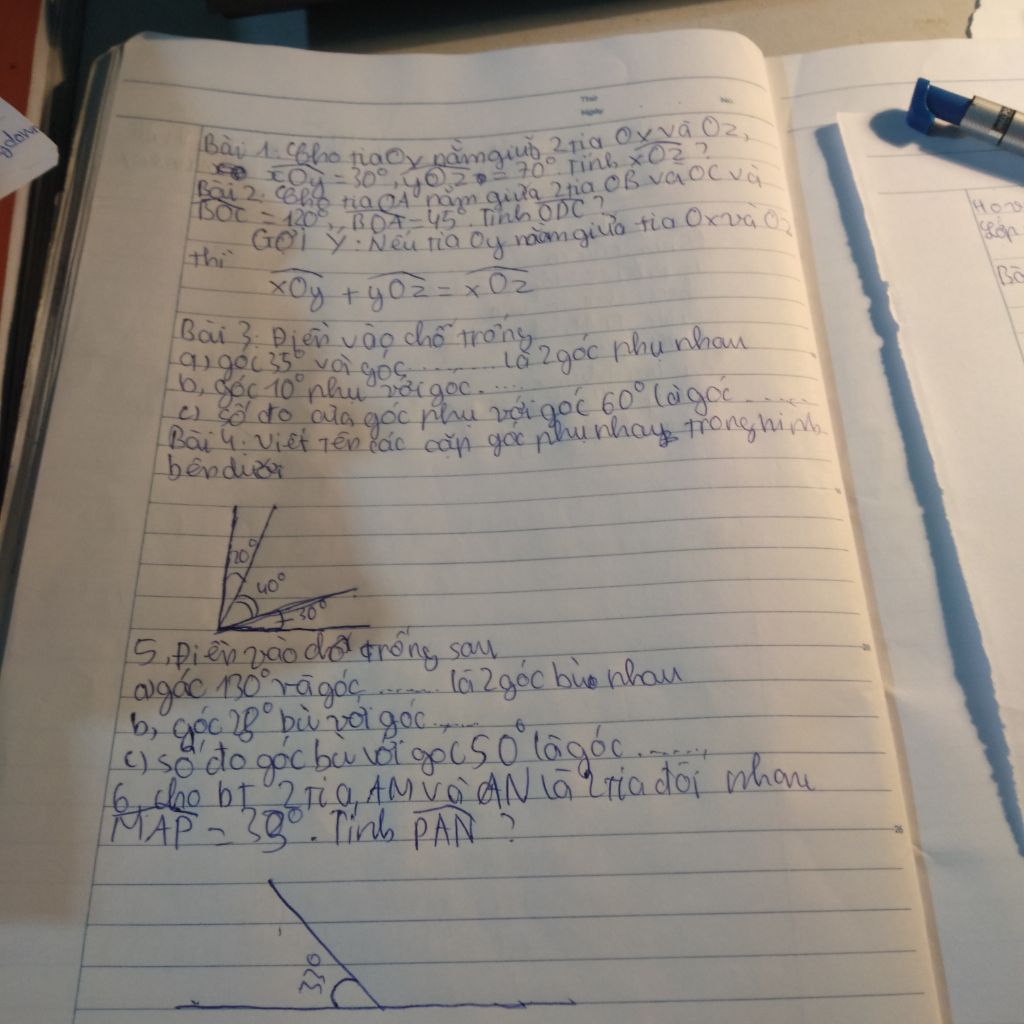 Thứ
Ngày
No.
Bài 1. Cho tia Oy nằm giữa 2 tia Ox và Oz,
xOy = 30°, yOz = 70°. Tính xOz ?
Bài 2. Cho tia OA nằm giữa 2 tia OB và OC và
BOC = 120°, BOA = 45°. Tính ODC ?
GỢI Ý: Nếu tia Oy nằm giữa tia Ox và Oz
thì
xOy + yOz = xOz
Bài 3: Điền vào chỗ trống
a, góc 35° và góc ......... là 2 góc phụ nhau
b, góc 10° phụ với góc .....
c) số đo của góc phụ với góc 60° là góc ......
Bài 4: Viết tên các cặp góc phụ nhau trong hình
bên dưới
20°
40°
30°
5, Điền vào chỗ trống sau
a) góc 130° và góc ...... là 2 góc bù nhau
b, góc 28° bù với góc .....
c) số đo góc bù với góc 50° là góc ......
6, cho bt 2 tia, AM và AN là 2 tia đối nhau
MAP = 33°. Tính PAN ?
33°
26
Họ và
Lớp
Bà